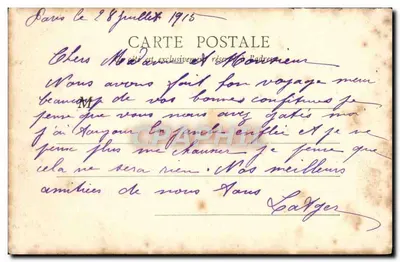 Paris le 28 juillet 1915
CARTE POSTALE
Chers Madame et Monsieur
Nous avons fait bon voyage merci
beaucoup de vos bonnes confitures je
pense que vous nous avez gatés moi
j'ai toujour la jambe enflée et je ne
peux plus me chausser je pense que
cela ne sera rien. Nos meilleurs
amitiées de nous tous
Latger